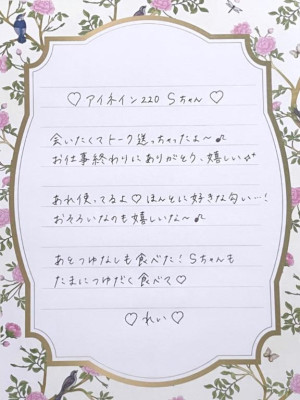 ♡ アイネイン220 Sちゃん ♡
会いたくてトーク送っちゃったよ〜♪
お仕事終わりにありがとう、嬉しい✨
あれ使ってるよ♡ほんとに好きな匂い…!
おそろいなのも嬉しいな〜♪
あとつゆなしも食べた!Sちゃんも
たまにつゆだく食べて♡
♡ れい ♡